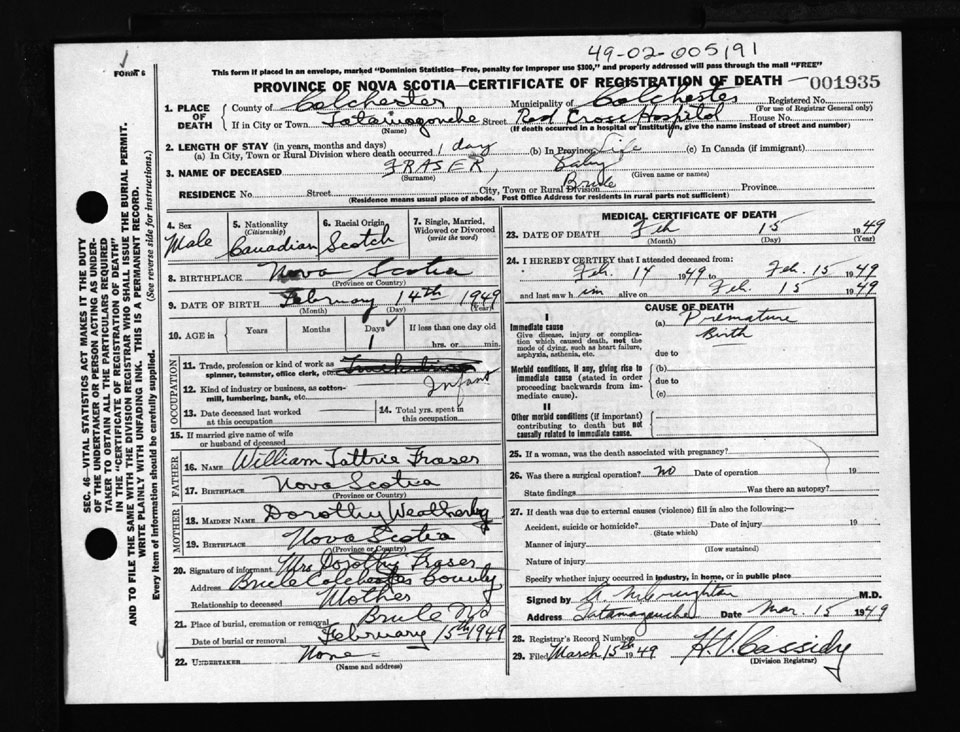 49-02-005191
FORM 6
This form if placed in an envelope, marked "Dominion Statistics—Free, penalty for improper use $300," and properly addressed will pass through the mail "FREE"
PROVINCE OF NOVA SCOTIA—CERTIFICATE OF REGISTRATION OF DEATH 001935
SEC. 46—VITAL STATISTICS ACT MAKES IT THE DUTY
OF THE UNDERTAKER OR PERSON ACTING AS UNDER-
TAKER TO OBTAIN ALL THE PARTICULARS REQUIRED
IN THE "CERTIFICATE OF REGISTRATION OF DEATH"
AND TO FILE THE SAME WITH THE DIVISION REGISTRAR WHO SHALL ISSUE THE BURIAL PERMIT.
WRITE PLAINLY WITH UNFADING INK. THIS IS A PERMANENT RECORD.
Every item of Information should be carefully supplied. (See reverse side for instructions.)
1. PLACE OF DEATH
County of Colchester Municipality of Colchester Registered No.
(For use of Registrar General only)
If in City or Town Tatamagouche Street Red Cross Hospital House No.
(Name) (If death occurred in a hospital or institution, give the name instead of street and number)
2. LENGTH OF STAY (in years, months and days)
(a) In City, Town or Rural Division where death occurred 1 day (b) In Province Life (c) In Canada (if immigrant)
3. NAME OF DECEASED FRASER, Baby
(Surname) (Given name or names)
RESIDENCE No. Street City, Town or Rural Division Brule Province
(Residence means usual place of abode. Post Office Address for residents in rural parts not sufficient)
4. Sex Male
5. Nationality (Citizenship) Canadian
6. Racial Origin Scotch
7. Single, Married, Widowed or Divorced (write the word)
8. BIRTHPLACE Nova Scotia
(Province or Country)
9. DATE OF BIRTH February 14th 1949
(Month) (Day) (Year)
10. AGE in Years Months Days If less than one day old
1 hrs. or min.
OCCUPATION
11. Trade, profession or kind of work as
spinner, teamster, office clerk, etc.
Infant
12. Kind of industry or business, as cotton-
mill, lumbering, bank, etc.
13. Date deceased last worked
at this occupation
14. Total yrs. spent in
this occupation
15. If married give name of wife
or husband of deceased
FATHER
16. NAME William Tattrie Fraser
17. BIRTHPLACE Nova Scotia
(Province or Country)
MOTHER
18. MAIDEN NAME Dorothy Weatherby
19. BIRTHPLACE Nova Scotia
(Province or Country)
20. Signature of informant Mrs Dorothy Fraser
Address Brule Colchester County
Relationship to deceased Mother
21. Place of burial, cremation or removal Brule NS
Date of burial or removal February 15th 1949
22. UNDERTAKER None
(Name and address)
MEDICAL CERTIFICATE OF DEATH
23. DATE OF DEATH Feb 15 1949
(Month) (Day) (Year)
24. I HEREBY CERTIFY that I attended deceased from
Feb. 14 1949 to Feb. 15 1949
and last saw him alive on Feb. 15 1949
CAUSE OF DEATH
I
Immediate cause
Give disease, injury or complica-
tion which caused death, not the
mode of dying, such as heart failure,
asphyxia, asthenia, etc.
(a) Premature
Birth
due to
Morbid conditions, if any, giving rise to
immediate cause (stated in order
proceeding backwards from im-
mediate cause).
(b)
due to
(c)
II
Other morbid conditions (if important)
contributing to death but not
causally related to immediate cause.
25. If a woman, was the death associated with pregnancy?
26. Was there a surgical operation? no Date of operation 19
State findings Was there an autopsy?
27. If death was due to external causes (violence) fill in also the following:—
Accident, suicide or homicide? Date of injury 19
(State which)
Manner of injury
(How sustained)
Nature of injury
Specify whether injury occurred in industry, in home, or in public place
Signed by M.D.
Address Tatamagouche Date Mar. 15 1949
28. Registrar's Record Number
29. Filed March 15th 1949 H.V. Cassidy
(Division Registrar)